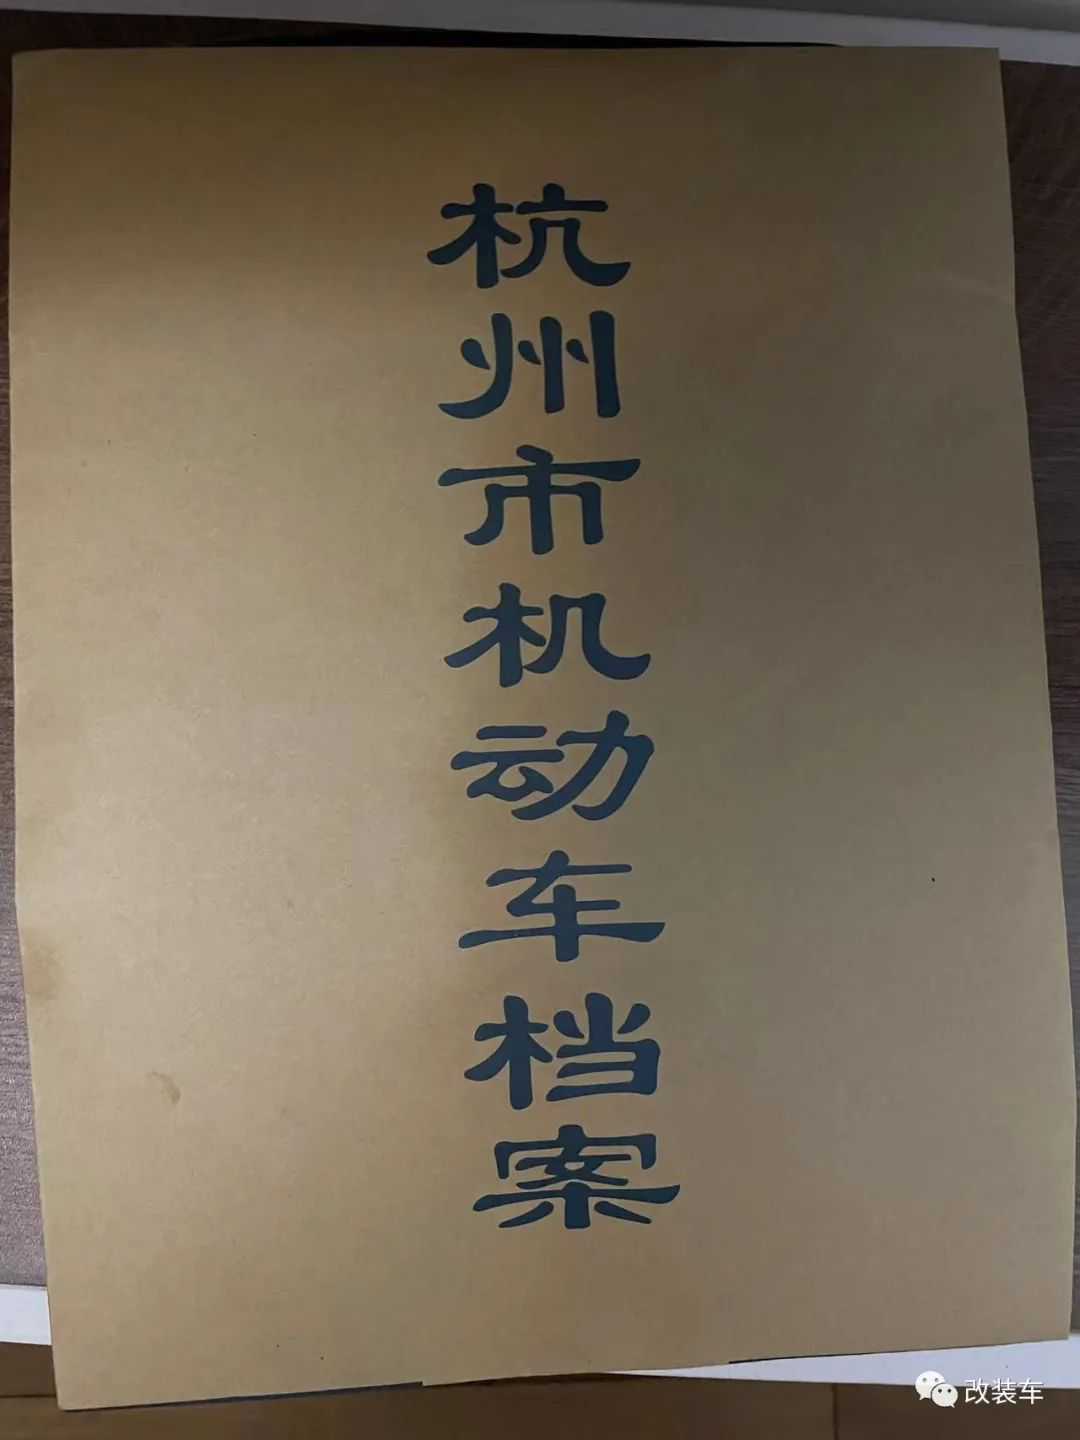 杭州市机动车档案
改装车